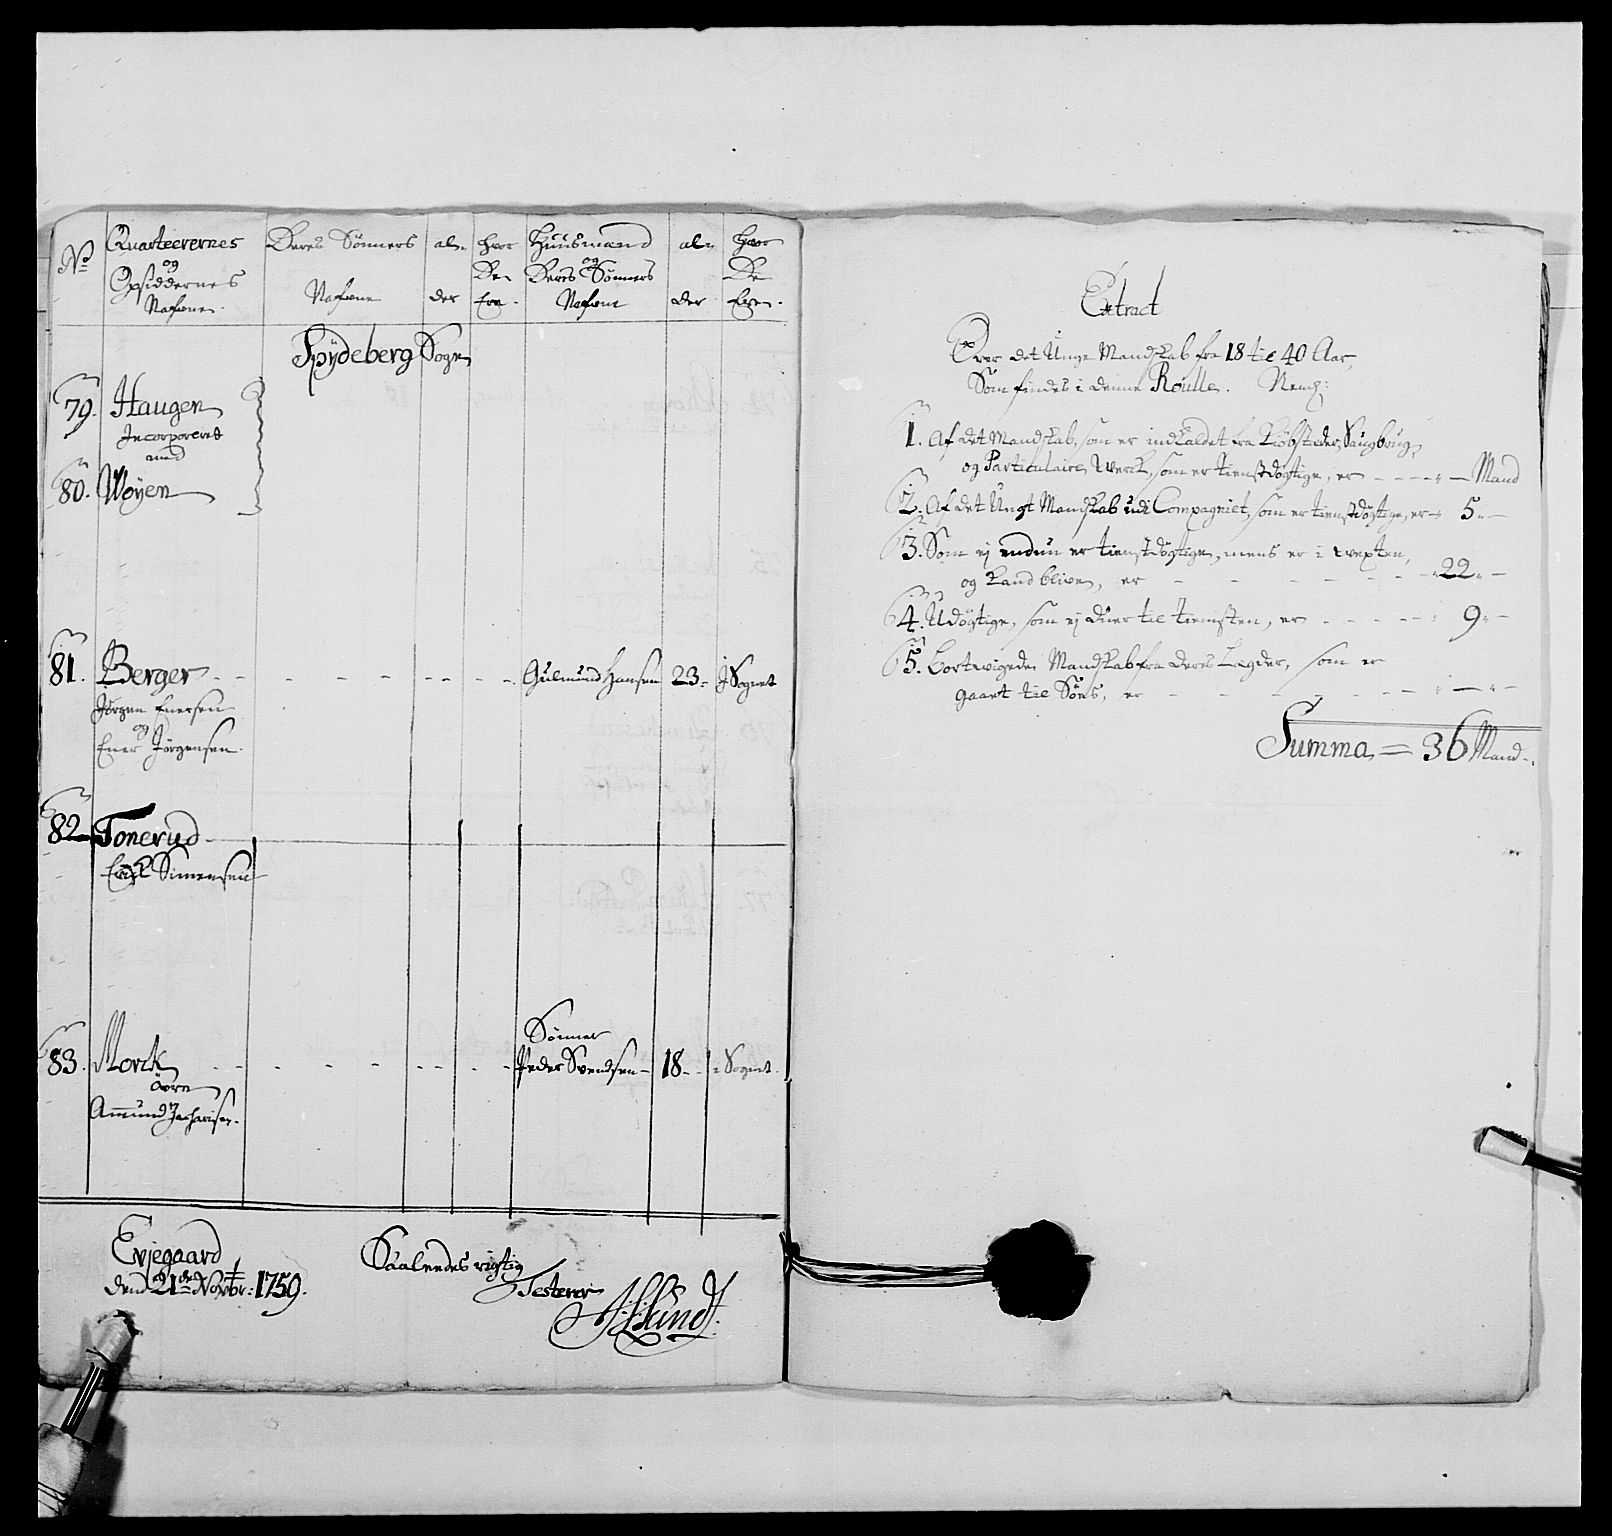 No
Quarteerernes
og
Opsiddernes
Nafwne.
Deres Sønners
Nafwne
al-
der
hvor
De-
Ere-
Huusmænd
og
Deres Sønners
Nafwne
al-
der
Hvor
De
Ere-
Spÿdeberg Sogn
79. Haugen
Incorporeret
med
80. Woÿen
81. Berger - - - - - - - - - Gulmund Hansen 23- j Sognet
Jørgen Enersen
og
Ener Jørgensen.
82 Tonerud
Simensen
Sønner
83. Morck - - - - - - - - Peder Svendsen - 18 - i Sognet.
övre
Amund Zacharisen.
Evjegaard
den 21de Novbr: 1759.
Saaledes rigtig
Testerer
Lund.
Extract
Over det Unge Mandskab fra 18 til 40 Aar,
Som findes i denne Roulle. Neml:
1. Af det Mandskab, som er indkaldet fra Kiøbsteder, Saugbrug,
og Particulaire Werck, som er tienstdøgtige, er - - - - " - Mand
2. Af det Ungt Mandskab udi Compagniet, som er tienstdøgtige, er - 5 " -
3. Som ej endnu er tienstdøgtige, mens er i wexten,
og kand blive, er - - - - - - - 22 " -
4. Udøgtige, som ej duer til tienisten, er - - - - - 9 " -
5. bortwigede Mandskab fra deres Lægder, som er
gaaet til Søes, er - - - - - - - " - " -
Summa = 36 Mand -.